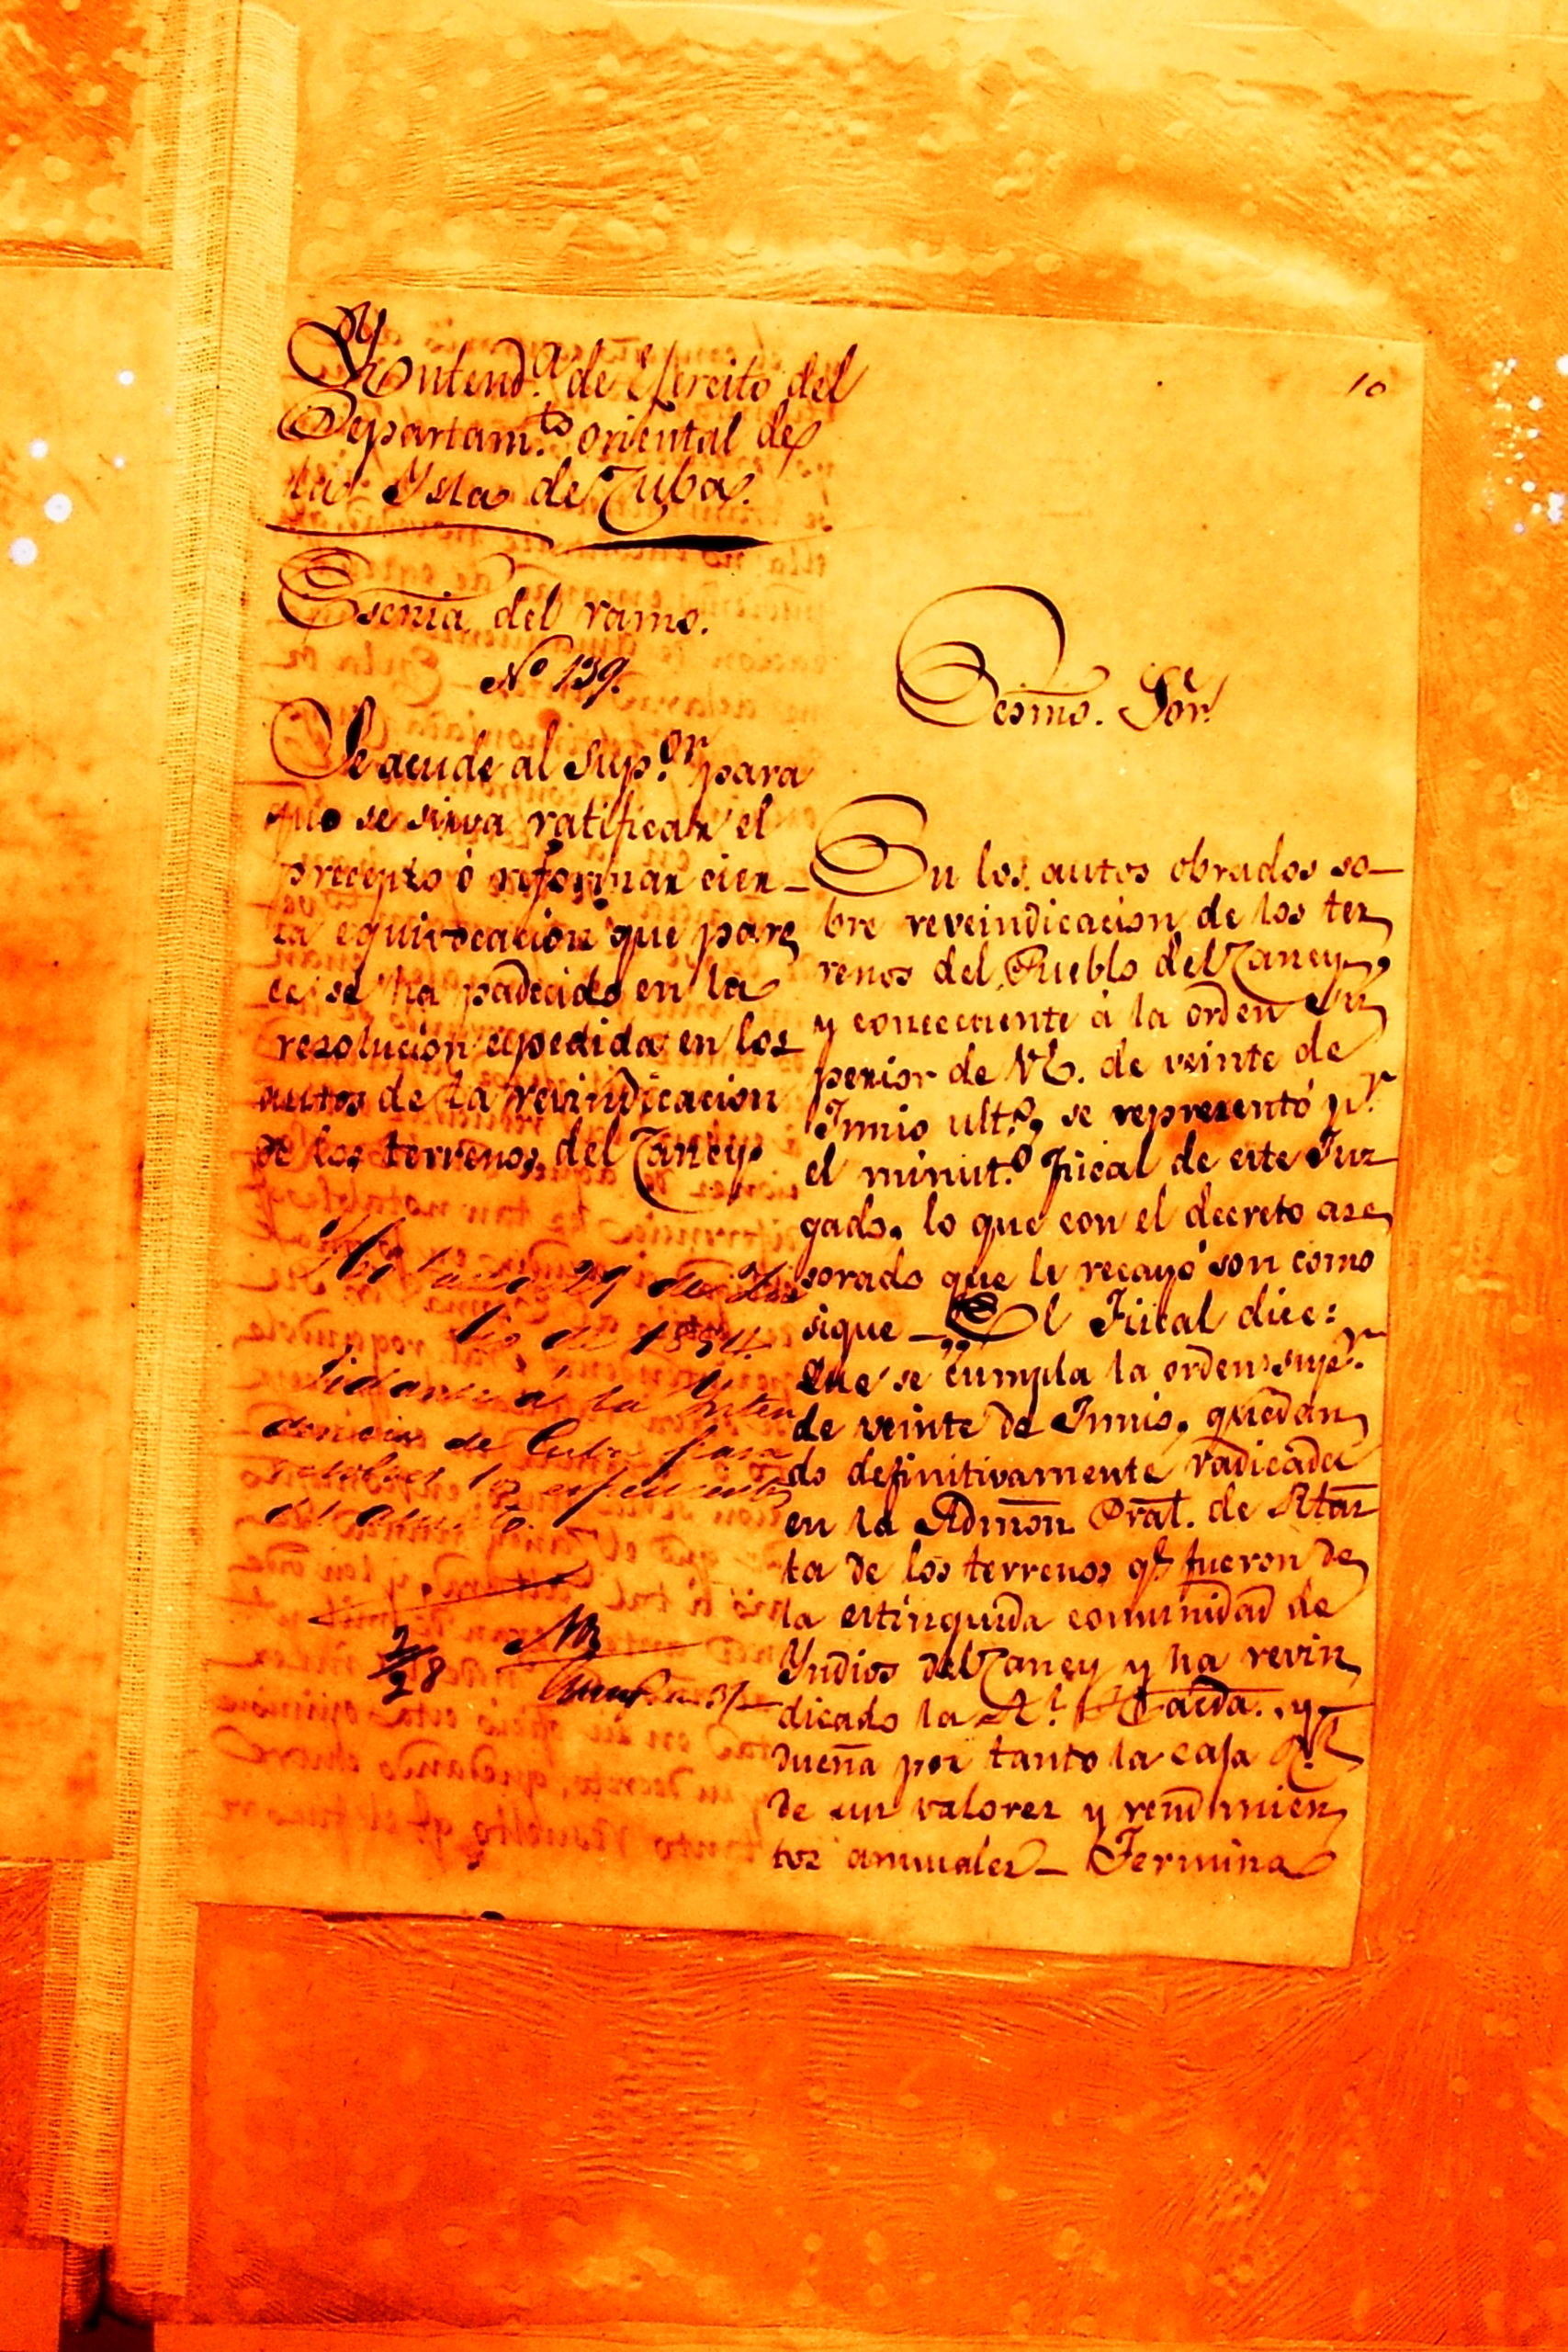 10
Yntend.ª de Ejército del
Departam.to oriental de
la Ysla de Cuba.
Essenía del ramo.
Nº 139.
Se acude al Sup.or para
que se sirva ratificar el
precepto ó reformar cier-
ta equivocacion que pare
ce se ha padecido en la
resolucion espedida en los
autos de la revindicacion
de los terrenos del Caney.
29 de Ju
lio de 1854.
Pidanse á la Inten
dencia de Cuba para
resolver los espedientes
del asunto.
Ecsmo. Sor.
En los autos obrados so-
bre reveindicacion de los ter
renos del Pueblo del Caney,
y consecuente á la orden Su
perior de VE. de veinte de
Junio ult.º, se representó p.r
el minist.º fiscal de este Juz
gado, lo que con el decreto ase
sorado que le recayó son como
sigue — El Fiscal dice:
Que se cumpla la orden sup.r
de veinte de Junio, quedan
do definitivamente radicada
en la Admón Gral. de Rtas
ta de los terrenos q.e fueron de
la estinguida comunidad de
Yndios del Caney y ha revin
dicado la R.l Hacda. y
dueña por tanto la caja R.l
de sus valores y rendimien
tos anuales — Fermina